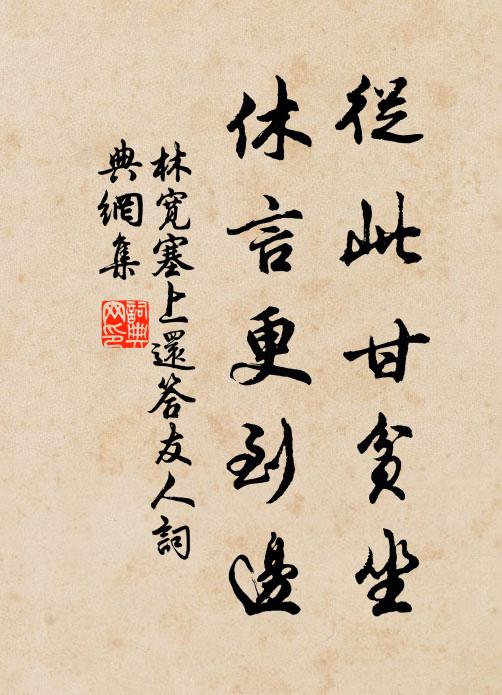 從此甘貧坐
休言更到邊
林寬塞上還答友人詞
典網集
詞典
网印